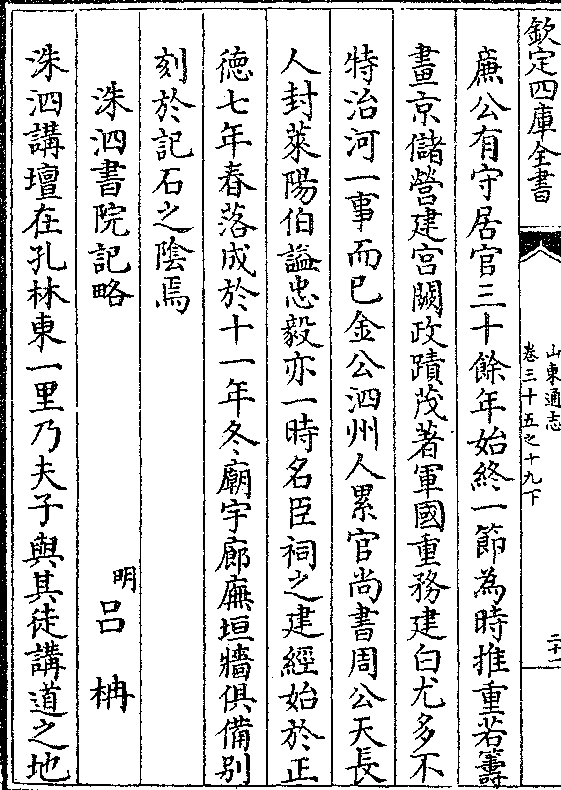 欽定四庫全書
山東通志
卷三十五之十九下
二十一
廉公有守居官三十餘年始終一節為時推重若籌
畫京儲營建宮闕政蹟茂著軍國重務建白尤多不
特治河一事而已金公泗州人累官尚書周公天長
人封萊陽伯諡忠毅亦一時名臣祠之建經始於正
徳七年春落成於十一年冬廟宇廊廡垣牆俱備别
刻於記石之陰焉
洙泗書院記略
明
呂 柟
洙泗講壇在孔林東一里乃夫子與其徒講道之地